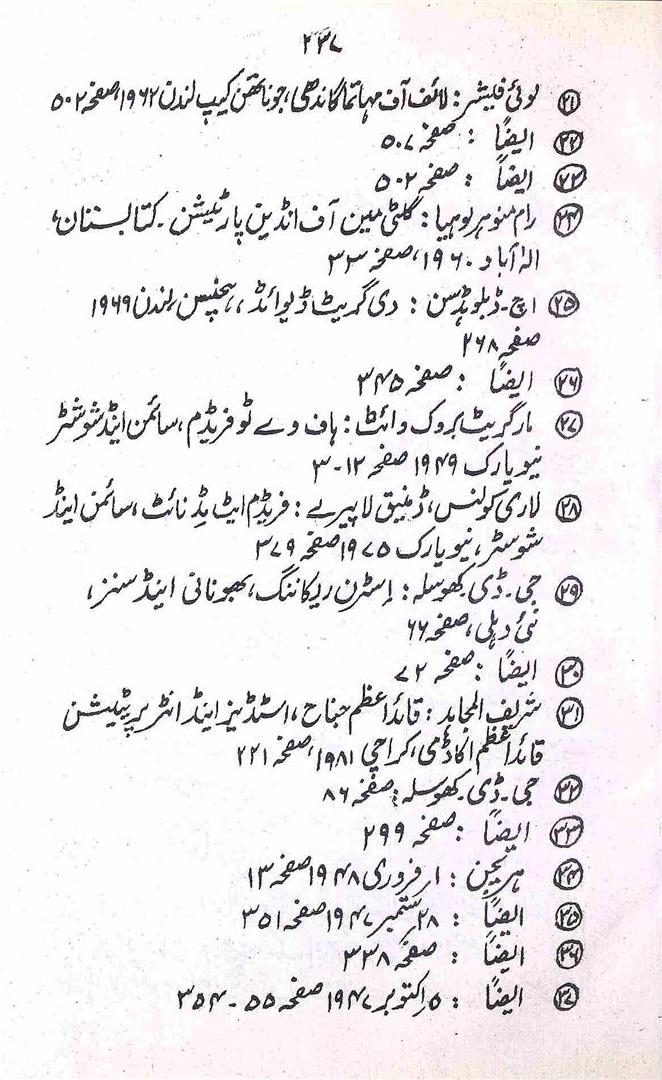 ۲۳۷
(۲۱) لوئی فیشر : لائف آف مہاتما گاندھی، جوناتھن کیپ لندن ۱۹۶۲، صفحہ ۵۰۲
(۲۲) ایضاً : صفحہ ۵۰۷
(۲۳) ایضاً : صفحہ ۵۰۲
(۲۴) رام منوہر لوہیا : گلٹی مین آف انڈین پارٹیشن ۔ کتابستان،
الہٰ آباد ۱۹۶۰، صفحہ ۳۳
(۲۵) اچ ۔ ڈبلو ہڈسن : دی گریٹ ڈیوائڈ، ہچنسن لندن ۱۹۶۹
صفحہ ۲۶۸
(۲۶) ایضاً : صفحہ ۳۴۵
(۲۷) مارگریٹ بروک وائٹ : ہاف وے ٹو فریڈم، سائمن اینڈ شوشٹر
نیویارک ۱۹۴۹ صفحہ ۱۲-۳
(۲۸) لاری کولنس، ڈمنیق لاپیرے : فریڈم ایٹ مڈ نائٹ، سائمن اینڈ
شوسٹر، نیویارک ۱۹۷۵ صفحہ ۳۷۹
(۲۹) جی ۔ ڈی کھوسلہ : اسٹرن ریکاننگ، بھونانی اینڈ سنز،
نئی دہلی، صفحہ ۶۶
(۳۰) ایضاً : صفحہ ۷۲
(۳۱) شریف المجاہد : قائد اعظم جناح، اسٹڈیز اینڈ انٹرپریٹیشن
قائد اعظم اکاڈمی، کراچی ۱۹۸۱، صفحہ ۲۲۱
(۳۲) جی ۔ ڈی کھوسلہ : صفحہ ۸۶
(۳۳) ایضاً : صفحہ ۲۹۹
(۳۴) ہریجن : ۱ر فروری ۱۹۴۸ صفحہ ۱۳
(۳۵) ایضاً : ۲۸ ستمبر ۱۹۴۷ صفحہ ۳۵۱
(۳۶) ایضاً : صفحہ ۳۳۸
(۳۷) ایضاً : ۵ر اکتوبر ۱۹۴۷ صفحہ ۵۵ - ۳۵۴